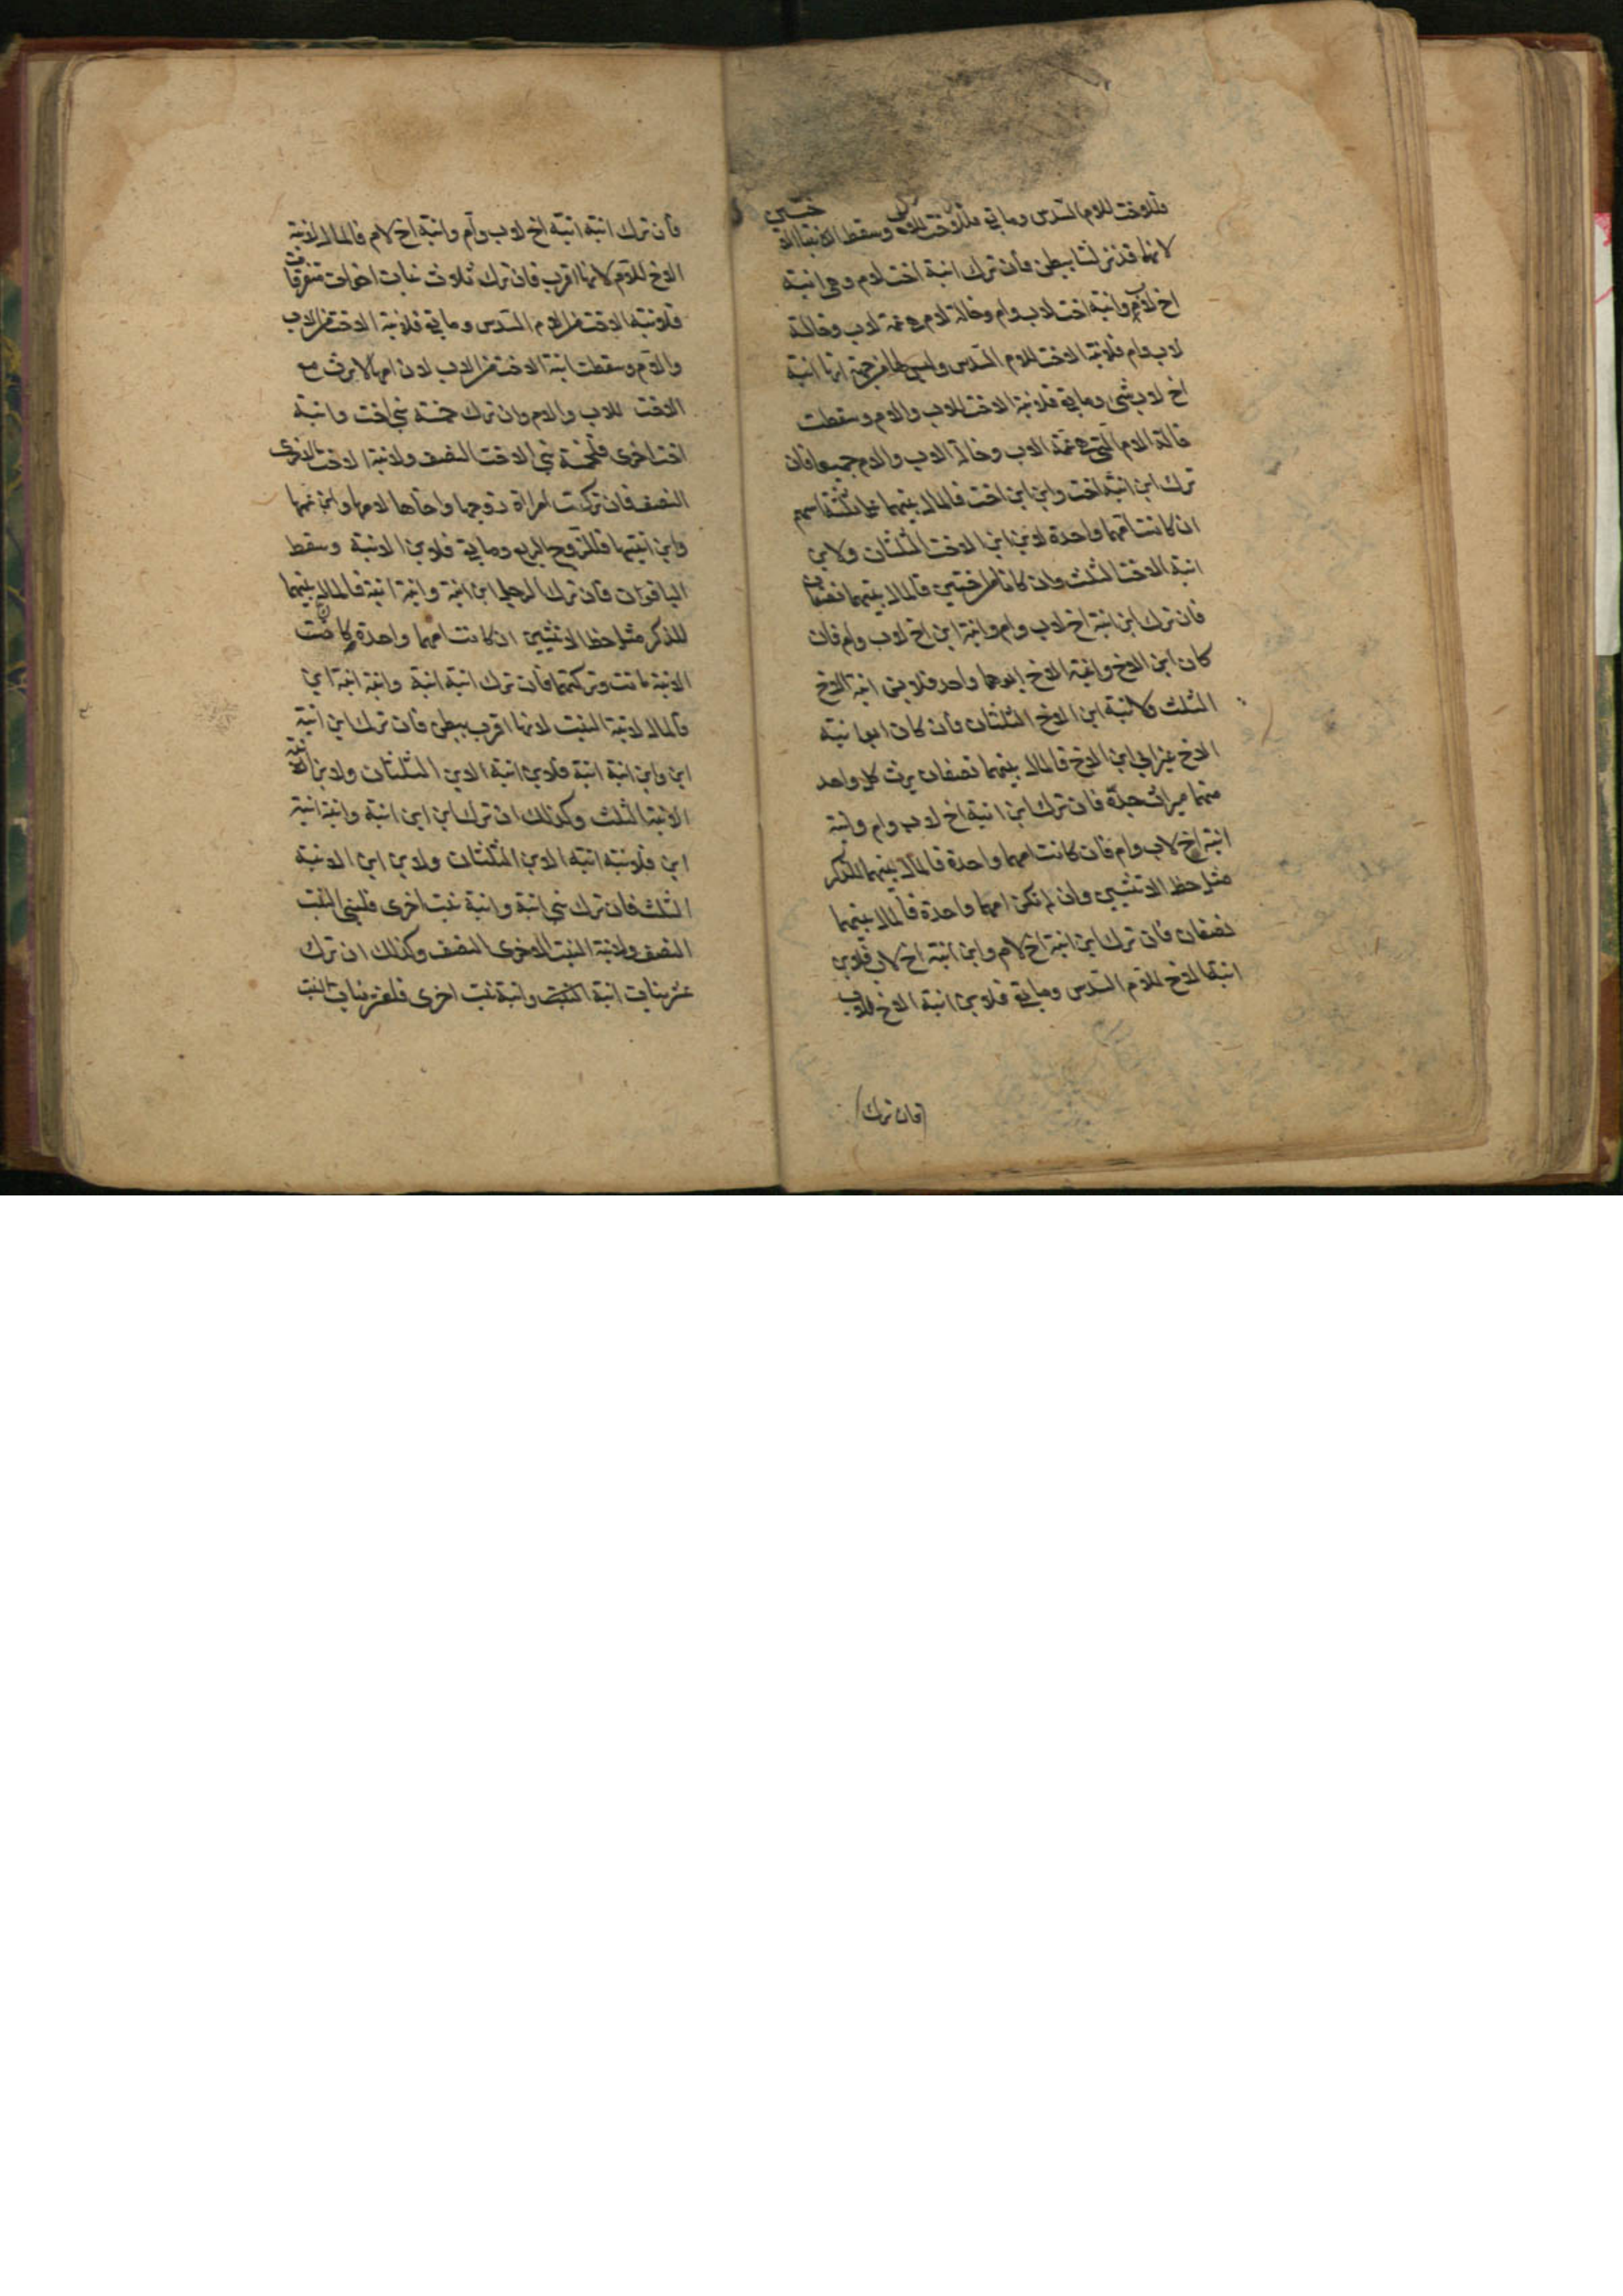 فللاخت للام السدس وما بقي فللاخت للاب وسقط الابنتا
لانها قد نزلتا ببطن فان ترك ابنة اخت لام وهي ابنة
اخ لام وابنة اخت لاب وام وخالة لام هي عمة لاب وخالة
لاب وام فلابنة الاخت للام السدس وليس لها من جهة انها ابنة
اخ لاب شئ وما بقي فلابنة الاخت للاب والام وسقطت
خالة الام التي هي عمة الاب وخالة الاب والام جميعا فان
ترك ابن ابنة اخت وابن ابن اخت فالمال بينهما على ثلثة اسهم
ان كانت امهما واحدة لابن ابن الاخت الثلثان ولابن
ابنة الاخت الثلث وان كانا من اختين فالمال بينهما نصفان
فان ترك ابن ابنة اخ لاب وام وابنة ابن اخ لاب وام فان
كان ابن الاخ وابنة الاخ ابوهما واحد فلابن ابنة الاخ
الثلث ولابنة ابن الاخ الثلثان فان كان ابو ابنة
الاخ غير ابي ابن الاخ فالمال بينهما نصفان يرث كل واحد
منهما ميراث جده فان ترك ابن ابنة اخ لاب وام وابنة
ابنة اخ لاب وام فان كانت امهما واحدة فالمال بينهما للذكر
مثل حظ الانثيين وان لم تكن امهما واحدة فالمال بينهما
نصفان فان ترك ابن ابنة اخ لام وابن ابنة اخ لاب فلابن
ابنة الاخ للام السدس وما بقي فلابن ابنة الاخ للاب
فان ترك
فان ترك ابنة ابنة اخ لاب وام وابنة اخ لام فالمال لابنة
الاخ للام لانها اقرب فان ترك ثلاث بنات اخوات متفرقات
فلابنة الاخت من الام السدس وما بقي فلابنة الاخت من الاب
والام وسقطت ابنة الاخت من الاب لان امها لا ترث مع
الاخت للاب والام وان ترك خمسة بني اخت وابنة
اخت اخرى فلخمسة بني الاخت النصف ولابنة الاخت الاخرى
النصف فان تركت امراة زوجها وخالها لامها وابن عمها
وابن ابنتها فللزوج الربع وما بقي فلابن الابنة وسقط
الباقون فان ترك الرجل ابن ابنة وابنة ابنة فالمال بينهما
للذكر مثل حظ الانثيين ان كانت امهما واحدة كانت
الابنة ماتت وتركتهما فان ترك ابنة ابنة وابنة ابنة ابن
فالمال لابنة البنت لانها اقرب ببطن فان ترك ابن ابنة
ابن وابن ابنة ابنة فلابن ابنة الابن الثلثان ولابن ابنة
الابنة الثلث وكذلك ان ترك ابن ابن ابنة وابنة ابنة
ابن فلابنة ابنة الابن الثلثان ولابن ابن الابنة
الثلث فان ترك بني ابنة وابنة بنت اخرى فلبني البنت
النصف ولابنة البنت الاخرى النصف وكذلك ان ترك
عشر بنات ابنة وابنة بنت اخرى فلعشر بنات البنت